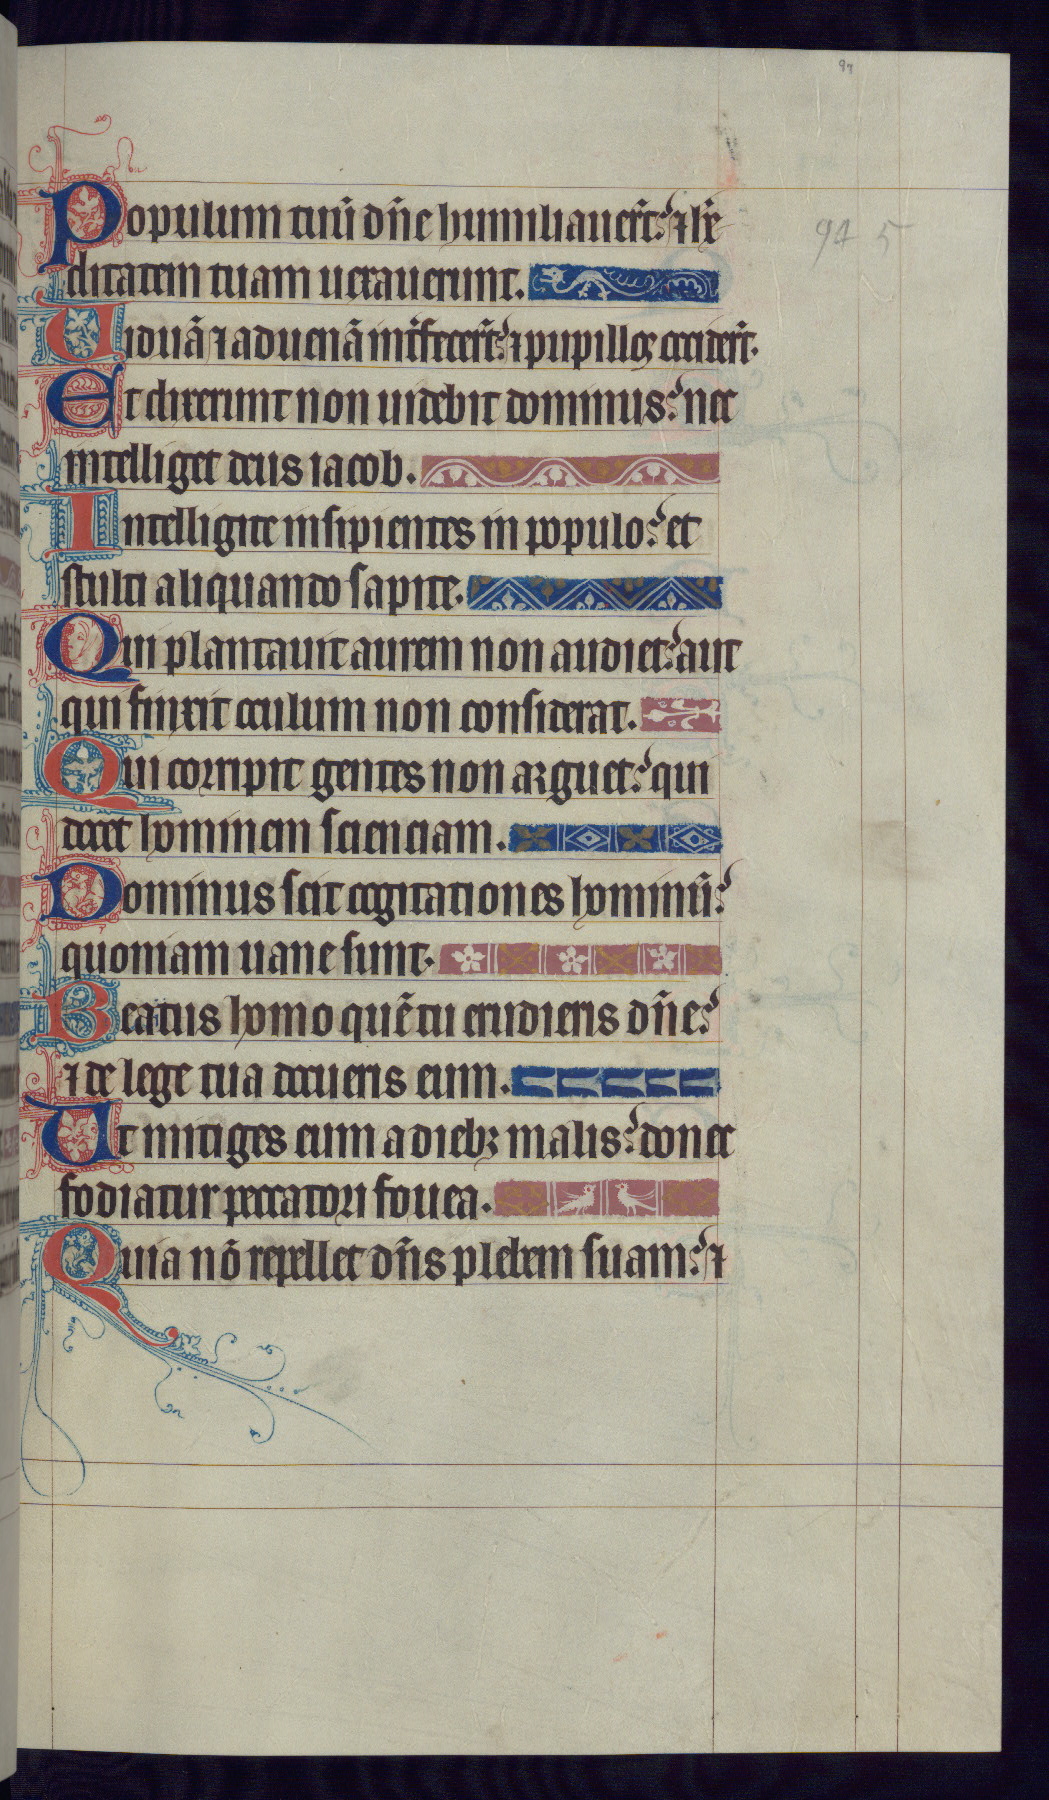 97
Populum tuū dn̄e humiliauer̄t: ⁊ he
94 5
ditatem tuam uexauerunt.
Uiduā ⁊ aduenā int̄fecer̄t: ⁊ pupilloꝝ occider̄t.
Et dixerunt non uidebit dominus: nec
intelliget deus iacob.
Intelligite insipientes in populo: et
stulti aliquando sapite.
Qui plantauit aurem non audiet: aut
qui finxit oculum non considerat.
Qui corripit gentes non arguet: qui
docet hominem scienciam.
Dominus scit cogitationes hominū:
quoniam uane sunt.
Beatus homo quē tu erudieris dn̄e:
⁊ de lege tua docueris eum.
Ut mitiges eum a dieb⁊ malis: donec
fodiatur peccatori fouea.
Quia nō repellet dn̄s plebem suam: ⁊